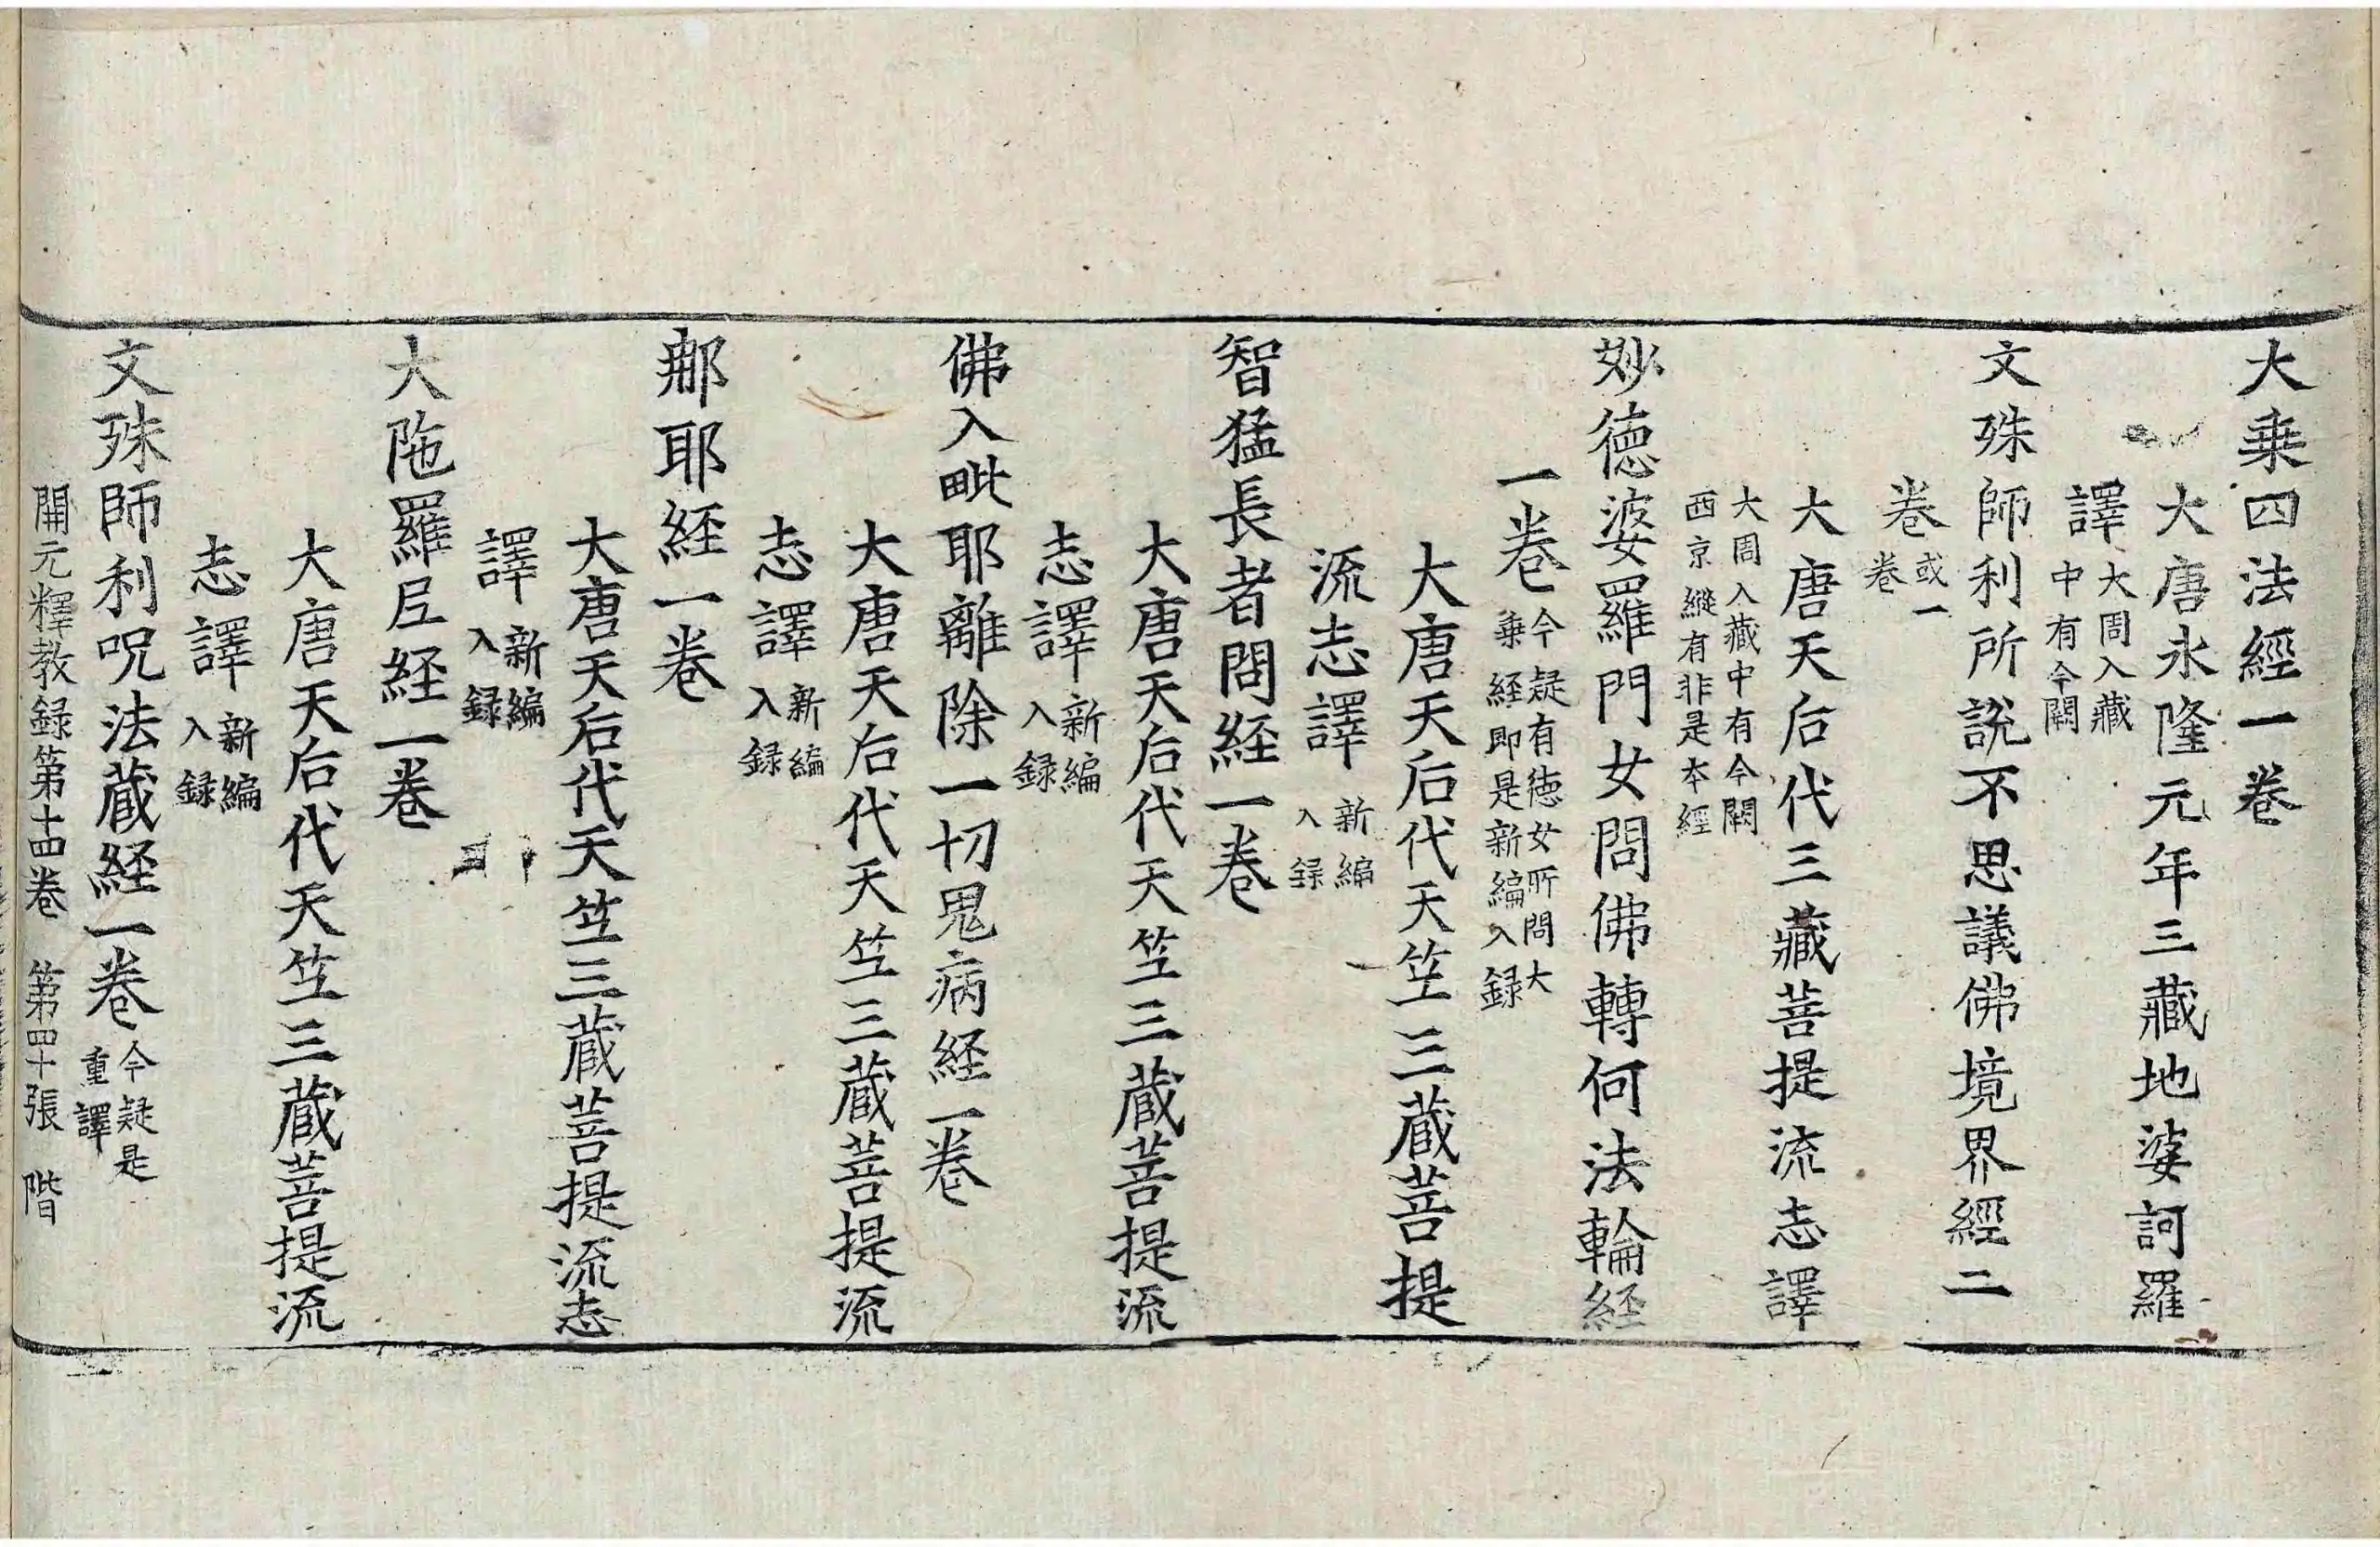 大乗四法經一卷
大唐永隆元年三藏地婆訶羅
譯大周入藏
中有今闕
文殊師利所說不思議佛境界經二
卷或一
卷
大唐天后代三藏菩提流志譯
大周入藏中有今闕
西京縱有非是本經
妙德婆羅門女問佛轉何法輪經
一卷今疑有德女所問大
乗経即是新編入録
大唐天后代天竺三蔵菩提
流志譯新編
入録
智猛長者問経一卷
大唐天后代天竺三蔵菩提流
志譯新編
入録
佛入毗耶離除一切鬼病経一卷
大唐天后代天竺三蔵菩提流
志譯新編
入録
那耶経一卷
大唐天后代天竺三蔵菩提流志
譯新編
入録
大陁羅尼経一卷
大唐天后代天竺三蔵菩提流
志譯新編
入録
文殊師利呪法蔵経一卷今疑是
重譯
開元釋教録第十四卷　第四十張　階